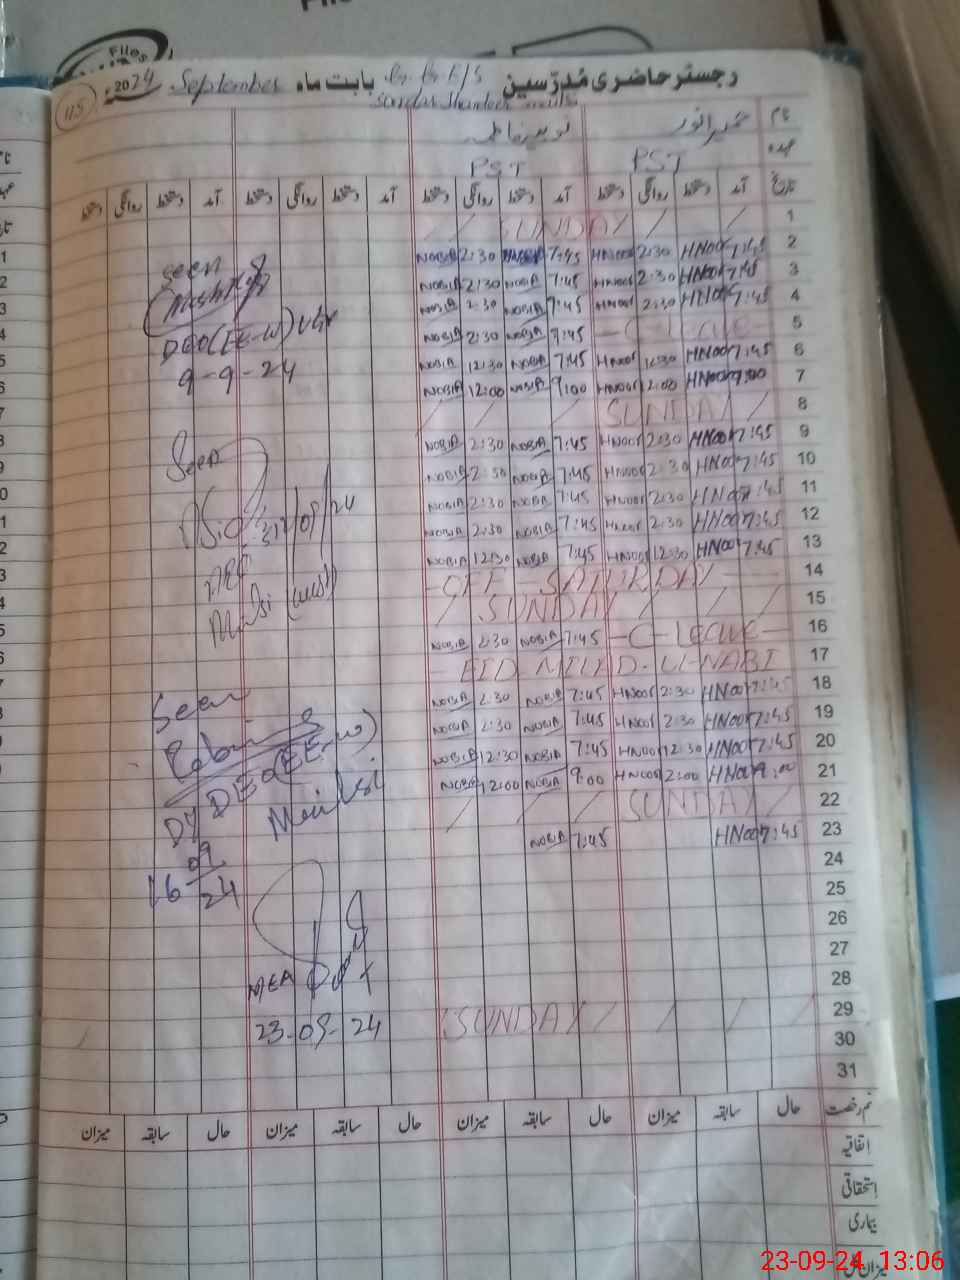 Files
115
رجسٹر حاضری مُدرّسین
بابت ماہ September 2024
نام
عہدہ PST PST
تاریخ آمد دستخط روانگی دستخط آمد دستخط روانگی دستخط آمد دستخط روانگی دستخط آمد دستخط روانگی دستخط
1 / / SUNDAY / /
2 7:45 HNoor 2:30 HNoor 7:45 NOBIA 2:30 NOBIA
3 7:45 HNoor 2:30 HNoor 7:45 NOBIA 2:30 NOBIA
4 7:45 HNoor 2:30 HNoor 7:45 NOBIA 2:30 NOBIA
5 C-leave 7:45 NOBIA 2:30 NOBIA
6 7:45 HNoor 12:30 HNoor 7:45 NOBIA 12:30 NOBIA
7 9:00 HNoor 12:00 HNoor 9:00 NOBIA 12:00 NOBIA
8 / / / SUNDAY /
9 7:45 HNoor 2:30 HNoor 7:45 NOBIA 2:30 NOBIA
10 7:45 HNoor 2:30 HNoor 7:45 NOBIA 2:30 NOBIA
11 7:45 HNoor 2:30 HNoor 7:45 NOBIA 2:30 NOBIA
12 7:45 HNoor 2:30 HNoor 7:45 NOBIA 2:30 NOBIA
13 7:45 HNoor 12:30 HNoor 7:45 NOBIA 12:30 NOBIA
14 - OFF - SATURDAY -
15 / SUNDAY / / /
16 - C- leave - 7:45 NOBIA 2:30 NOBIA
17 - EID MILAD-U-NABI
18 7:45 HNoor 2:30 HNoor 7:45 NOBIA 2:30 NOBIA
19 7:45 HNoor 2:30 HNoor 7:45 NOBIA 2:30 NOBIA
20 7:45 HNoor 12:30 HNoor 7:45 NOBIA 12:30 NOBIA
21 9:00 HNoor 12:00 HNoor 9:00 NOBIA 12:00 NOBIA
22 / / / SUNDAY /
23 7:45 HNoor 7:45 NOBIA
24
25
26
27
28
29 SUNDAY / / / /
30
31
seen
DEO(EE-W)
9-9-24
Seen
Seen
DY DEO(EE-W)
Mailsi
16/09/24
MEA
23-09-24
قسم رخصت حال سابقہ میزان حال سابقہ میزان حال سابقہ میزان حال سابقہ میزان
اتفاقیہ
استحقاقی
بیماری
میزان کل
23-09-24 13:06